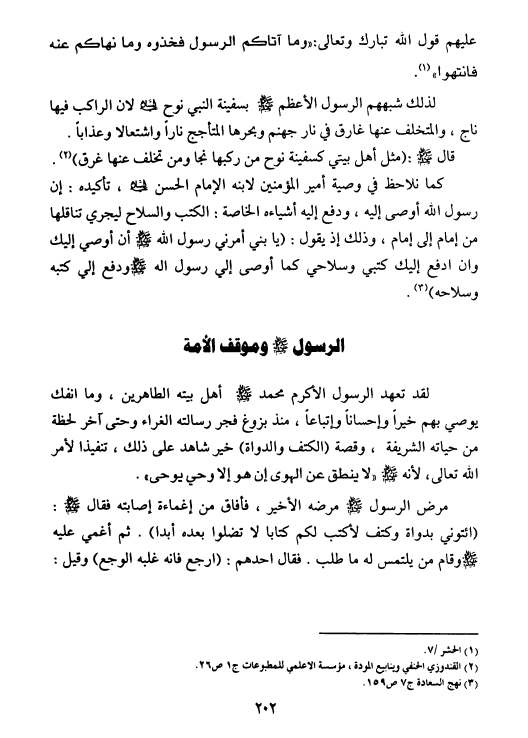 عليهم قول الله تبارك وتعالى:«وما آتاكم الرسول فخذوه وما نهاكم عنه
فانتهوا»(١).
لذلك شبههم الرسول الأعظم ﷺ بسفينة النبي نوح لان الراكب فيها
ناج ، والمتخلف عنها غارق في نار جهنم وبحرها المتأجج ناراً واشتعالا وعذاباً .
قال ﷺ :(مثل أهل بيتي كسفينة نوح من ركبها نجا ومن تخلف عنها غرق)(٢) .
كما نلاحظ في وصية أمير المؤمنين لابنه الإمام الحسن ، تأكيده : إن
رسول الله أوصى إليه ، ودفع إليه أشياءه الخاصة : الكتب والسلاح ليجري تناقلها
من إمام إلى إمام ، وذلك إذ يقول : (يا بني أمرني رسول الله ﷺ أن أوصي إليك
وان ادفع إليك كتبي وسلاحي كما أوصى إلي رسول اله ﷺ ودفع إلي كتبه
وسلاحه)(٣) .
الرسول ﷺ وموقف الأمة
لقد تعهد الرسول الأكرم محمد ﷺ أهل بيته الطاهرين ، وما انفك
يوصي بهم خيراً وإحساناً وإتباعاً ، منذ بزوغ فجر رسالته الغراء وحتى آخر لحظة
من حياته الشريفة ، وقصة (الكتف والدواة) خير شاهد على ذلك ، تنفيذا لأمر
الله تعالى، لأنه ﷺ «لا ينطق عن الهوى إن هو إلا وحي يوحى» .
مرض الرسول ﷺ مرضه الأخير ، فأفاق من إغماءة إصابته فقال ﷺ :
(ائتوني بدواة وكتف لأكتب لكم كتابا لا تضلوا بعده أبدا) . ثم أغمي عليه
ﷺ وقام من يلتمس له ما طلب . فقال احدهم : (ارجع فانه غلبه الوجع) وقيل :
(١) الحشر /٧.
(٢) القندوزي الحنفي وينابيع المودة ، مؤسسة الاعلمي للمطبوعات ج١ ص٢٦.
(٣) نهج السعادة ج٧ ص١٥٩.
٢٠٢